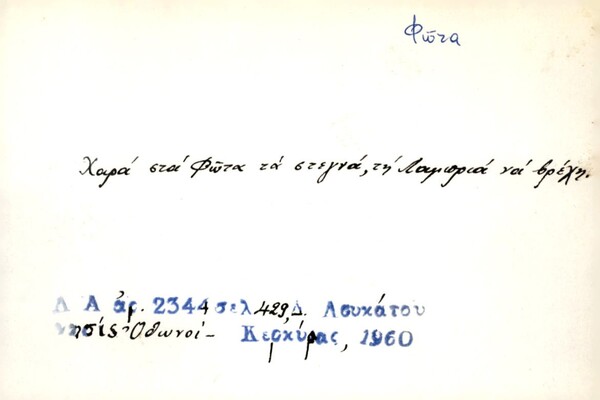 Φῶτα
Χαρά στά Φῶτα τά στεγνά, τή Λαμπριά νά βρέχη.
Λ Α ἀρ. 2344 σελ 429, Δ. Λουκάτου
νησίς Ὀθωνοί - Κερκύρας, 1960